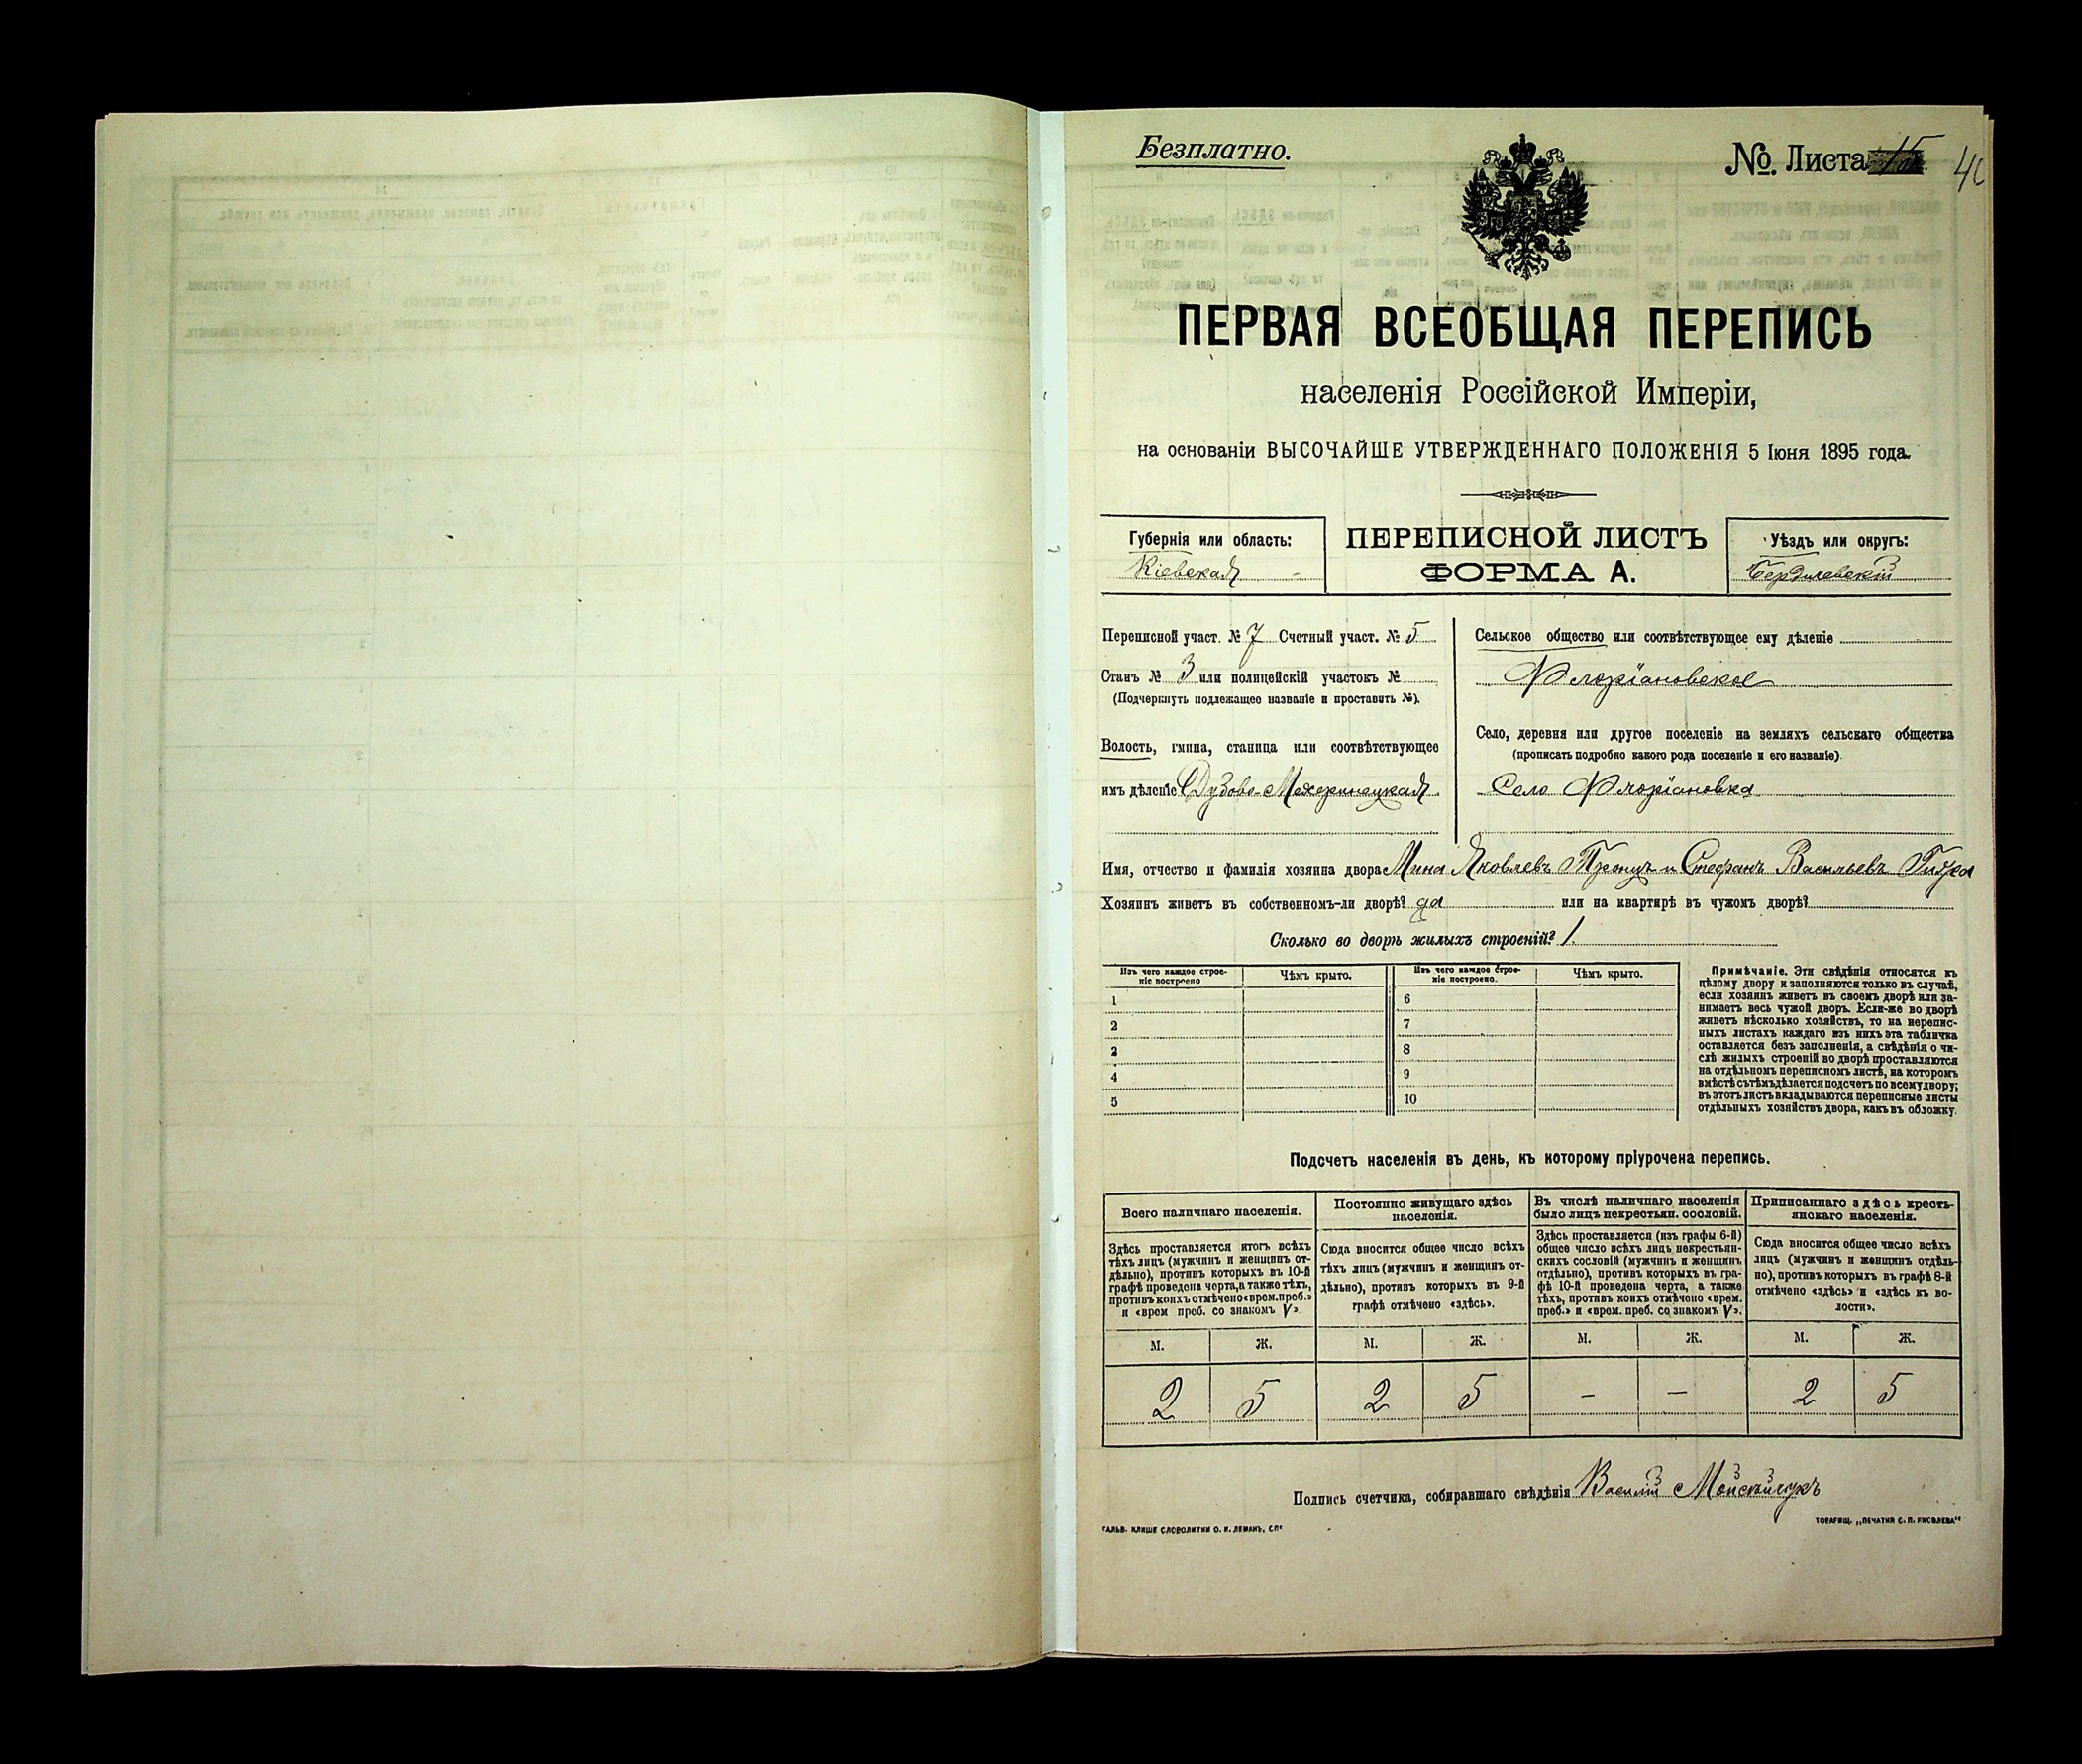 Безплатно.
№. Листа 15
ПЕРВАЯ ВСЕОБЩАЯ ПЕРЕПИСЬ
населенія Россійской Имперіи,
на основаніи ВЫСОЧАЙШЕ УТВЕРЖДЕННАГО ПОЛОЖЕНІЯ 5 Іюня 1895 года.
Губернія или область:
Кіевская
ПЕРЕПИСНОЙ ЛИСТЪ
ФОРМА А.
Уѣздъ или округъ:
Бердичевскій
Переписной участ. № 7 Счетный участ. № 5
Станъ № 3 или полицейскій участокъ №
(Подчеркнуть подлежащее названіе и проставить №).
Волость, гмина, станица или соотвѣтствующее
имъ дѣленіе
Сельское общество или соотвѣтствующее ему дѣленіе
Флоріановское
Село, деревня или другое поселеніе на земляхъ сельскаго общества
(прописать подробно какого рода поселеніе и его названіе).
Село Флоріановка
Имя, отчество и фамилія хозяина двора Мина Яковлевъ и Стефанъ Васильевъ
Хозяинъ живетъ въ собственномъ-ли дворѣ? да или на квартирѣ въ чужомъ дворѣ?
Сколько во дворѣ жилыхъ строеній? 1.
Изъ чего каждое строе-
ніе построено
Чѣмъ крыто.
Изъ чего каждое строе-
ніе построено.
Чѣмъ крыто.
1
2
2
4
5
6
7
8
9
10
Примѣчаніе. Эти свѣдѣнія относятся къ
цѣлому двору и заполняются только въ случаѣ,
если хозяинъ живетъ въ своемъ дворѣ или за-
нимаетъ весь чужой дворъ. Если-же во дворѣ
живетъ нѣсколько хозяйствъ, то на перепис-
ныхъ листахъ каждаго изъ нихъ эта табличка
оставляется безъ заполненія, а свѣдѣнія о чи-
слѣ жилыхъ строеній во дворѣ проставляются
на отдѣльномъ переписномъ листѣ, на которомъ
вмѣстѣ съ тѣмъ дѣлается подсчетъ по всему двору;
въ этотъ листъ вкладываются переписные листы
отдѣльныхъ хозяйствъ двора, какъ въ обложку.
Подсчетъ населенія въ день, къ которому пріурочена перепись.
Всего наличнаго населенія.
Постоянно живущаго здѣсь
населенія.
Въ числѣ наличнаго населенія
было лицъ некрестьян. сословій.
Приписаннаго здѣсь кресть-
янскаго населенія.
Здѣсь проставляется итогъ всѣхъ
тѣхъ лицъ (мужчинъ и женщинъ от-
дѣльно), противъ которыхъ въ 10-й
графѣ проведена черта, а также тѣхъ,
противъ коихъ отмѣчено «врем. преб.»
и «врем преб. со знакомъ V».
Сюда вносится общее число всѣхъ
тѣхъ лицъ (мужчинъ и женщинъ от-
дѣльно), противъ которыхъ въ 9-й
графѣ отмѣчено «здѣсь».
Здѣсь проставляется (изъ графы 6-й)
общее число всѣхъ лицъ некрестьян-
скихъ сословій (мужчинъ и женщинъ
отдѣльно), противъ которыхъ въ гра-
фѣ 10-й проведена черта, а также
тѣхъ, противъ коихъ отмѣчено «врем.
преб.» и «врем. преб. со знакомъ V».
Сюда вносится общее число всѣхъ
лицъ (мужчинъ и женщинъ отдѣль-
но), противъ которыхъ въ графѣ 8-й
отмѣчено «здѣсь» и «здѣсь къ во-
лости».
М. Ж. М. Ж. М. Ж. М. Ж.
2 5 2 5 — — 2 5
Подпись счетчика, собиравшаго свѣдѣнія Василій
ГАЛЬВ. КЛИШЕ СЛОВОЛИТНИ О. И. ЛЕМАНЪ, СПБ
ТОВАРИЩ. „ПЕЧАТНЯ С. П. ЯКОВЛЕВА"